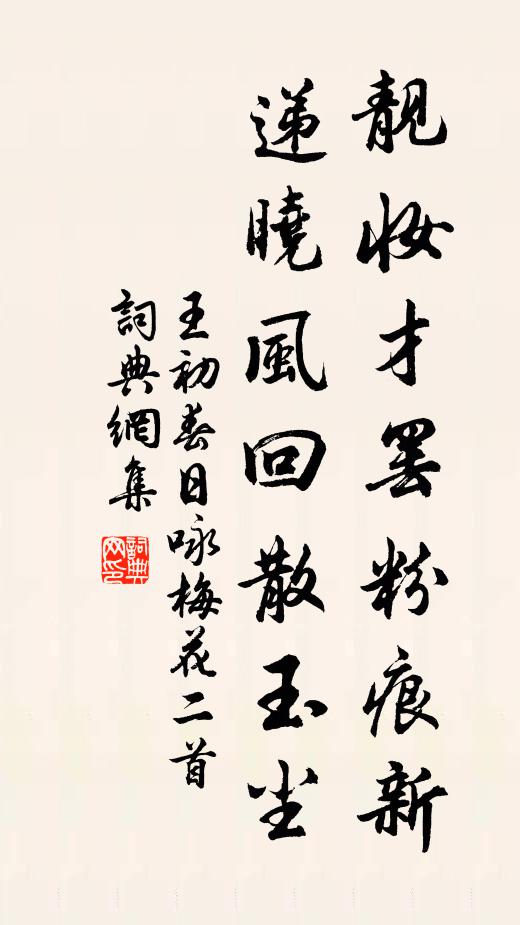 靚妝才罷粉痕新
遞曉風回散玉尘
王初春日咏梅花二首
詞典網集
詞典网印